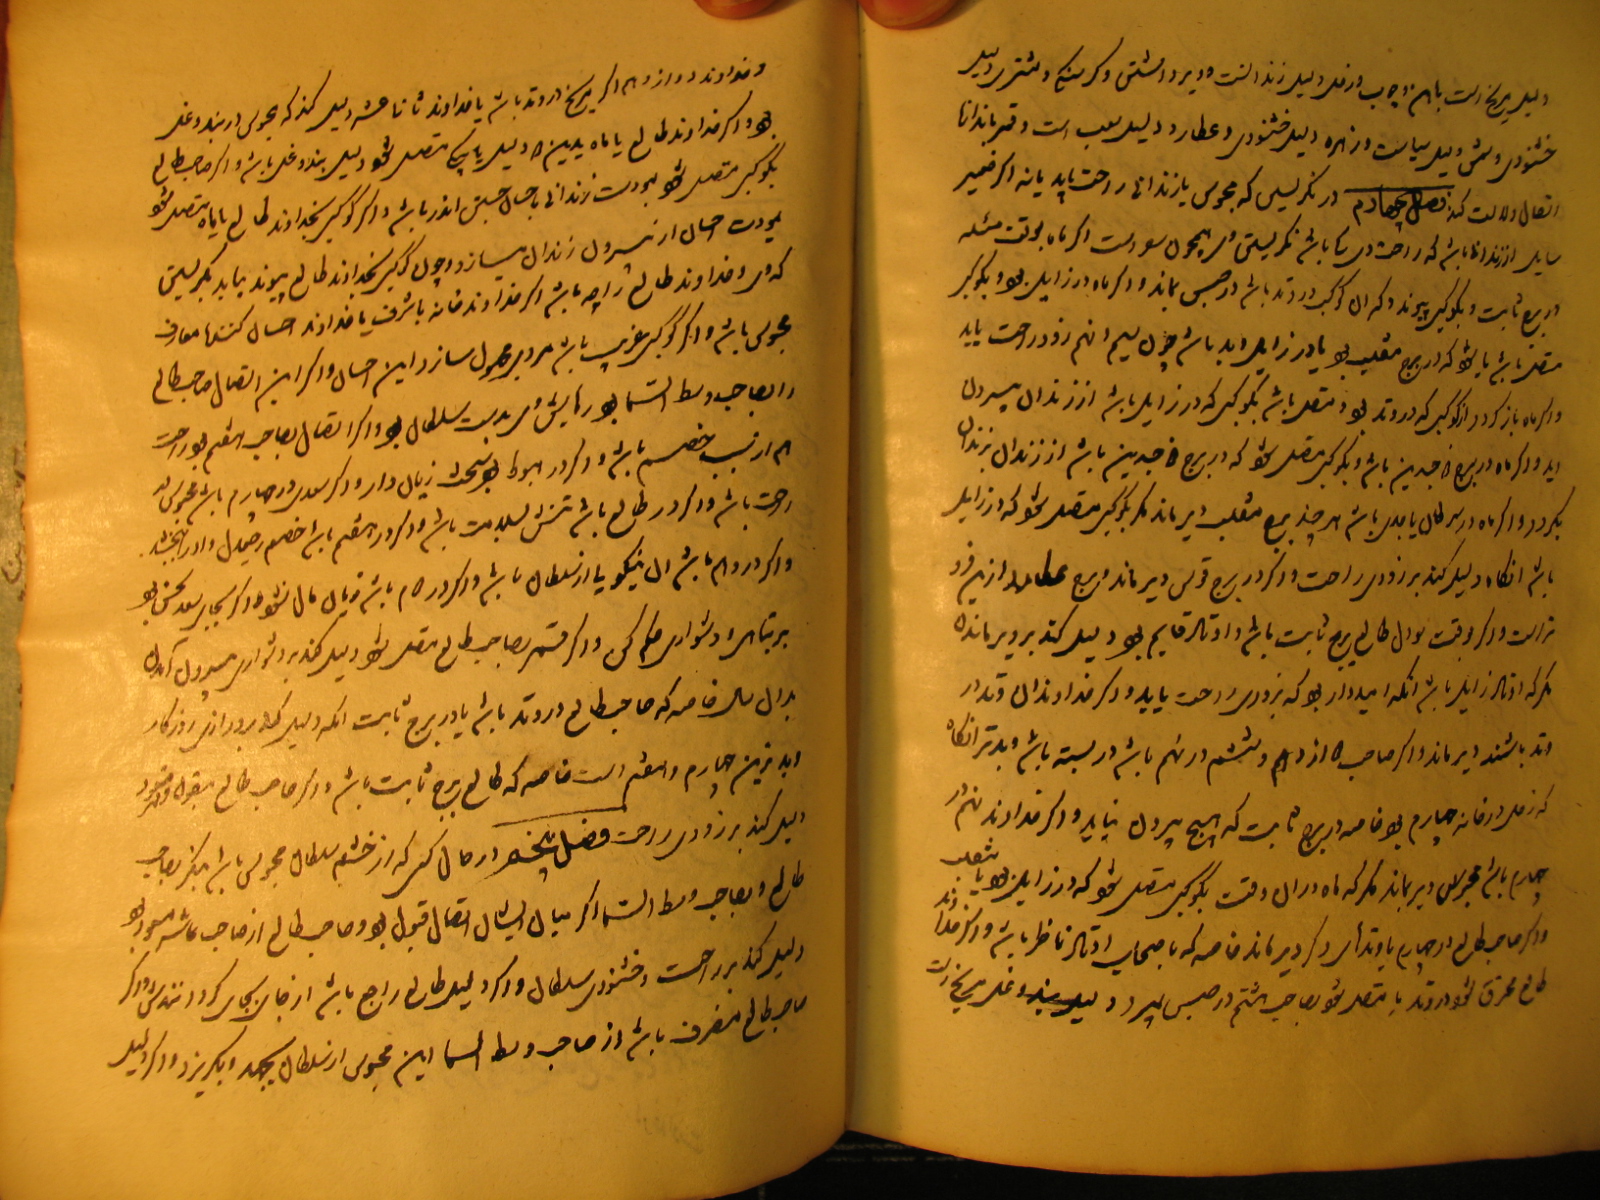 دلیل مریخ است باهم زحل دلیل زندانست و دیر داشتن و مشتری دلیل
خشنودی و شمس دلیل سیاست و زهره دلیل خشنودی و عطارد دلیل سبب است و قمر
اتصال دلالت کند فصل چهارم در نگرستن که محبوس یا زندانی راحت یابد یا نه اگر ضمیر
سایل از زندان باشد که راحت وی کی باشد نگرستن وی همچون سؤالست اگر ماه بوقت مسئله
در برج ثابت و بکوکبی پیوندد که آن کوکب در وتد باشد در حبس بماند و اگر ماه در زایل بود و بکوکبی
متصل باشد که در برج منقلب بود یا در زایل وتد باشد چون سیم و نهم زود راحت یابد
و اگر ماه باز گردد از کوکبی که در وتد بود و متصل باشد بکوکبی که در زایل باشد از زندان بیرون
اید و اگر ماه در برج ذو جسدین باشد و بکوکبی متصل شود که در برج ذو جسدین باشد از زندان بزندان
بگردد و اگر ماه در سرطان یا جدی باشد هر چند برج منقلب دیر ماند مگر بکوکبی متصل شود که در زایل
باشد انگاه دلیل کند بر زودی راحت و اگر در برج قوس دیر ماند و برج
تر است و اگر وقت سوال طالع برج ثابت باشد و اوتاد قایم بود دلیل کند بر دیر ماندن
مگر که اوتاد زایل باشد انگه امیدوار بود که بزودی راحت یابد و اگر خداوندان وتد در
وتد باشند دیر ماند و اگر صاحب دوازدهم و ششم در نهم باشد در بسته باشد و بدتر انگاه
که زحل در خانه چهارم بود خاصه در برج ثابت که هیچ بیرون نیاید و اگر خداوند نهم در
چهارم باشد محبوس دیر بماند مگر که ماه در ان وقت بکوکبی متصل شود که در زایل بود یا منقلب
و اگر صاحب طالع در چهارم یا وتدی دیگر دیر ماند خاصه که با صحاب اوتاد ناظر باشد و اگر خداوند
طالع محترق شود در وتد یا متصل شود بصاحب هشتم در حبس بمیرد و دلیل بند و غل مریخ است
و خداوند دوازدهم اگر مریخ در وتد باشد یا خداوند ثانا عشر دلیل کند که محبوس در بند و غل
بود و اگر خداوند طالع یا ماه بدین دو دلیل یا بیکی متصل شود دلیل بند و غل باشد و اگر صاحب طالع
بکوکبی متصل شود بیودت زندانی بحال حبس اندر باشد و اگر کوکبی بخداوند طالع یا ماه متصل شود
بیودت احسان از بیرون زندان میسازد و چون کوکبی بخداوند طالع پیوندد بباید نگرستن
که وی خداوند طالع را چه باشد اگر خداوند خانه یا شرف یا خداوند احسان کننده معارف
محبوس باشد و اگر کوکبی غریب باشد مردی مجهول سازد این احسان و اگر این اتصال صاحب طالع
را بصاحب وسط السما بود رهایش وی بدست سلطان بود و اگر اتصال بصاحب هفتم بود راحت
هم از سبب خصم باشد و اگر در هبوط بود سخت زیان دارد و اگر سعدی در چهارم باشد محبوس در
راحت باشد و اگر در طالع باشد تنش بسلامت باشد و اگر در هفتم باشد خصم رحم دل و او را بخشد
و اگر در دهم باشد ان نیکویی از سلطان باشد و اگر در دوم باشد زیان مال نشود و اگر بجای سعد نحس بود
بر تباهی و دشواری حکم کن و اگر قمر بصاحب طالع متصل شود دلیل کند بر دشواری بیرون آمدن
بدان حال خاصه که صاحب طالع در وتد باشد یا در برج ثابت انگه دلیل کند بر درازی روزگار
و بدترین چهارم و هفتم است خاصه که طالع برج ثابت باشد و اگر صاحب طالع مقبول و مسعود
دلیل کند بر زودی راحت فصل پنجم در حال کسی که از خشم سلطان محبوس باشد بنگر بصاحب
طالع و بصاحب وسط السما اگر میان ایشان اتصال قبول بود و صاحب طالع از صاحب عاشر مسعود بود
دلیل کند بر راحت و خشنودی سلطان و اگر دلیل طالع راجع باشد از جایی بجایی گردانندش و اگر
صاحب طالع منصرف باشد از صاحب وسط السما این محبوس از سلطان بجهد و بگریزد و اگر دلیل